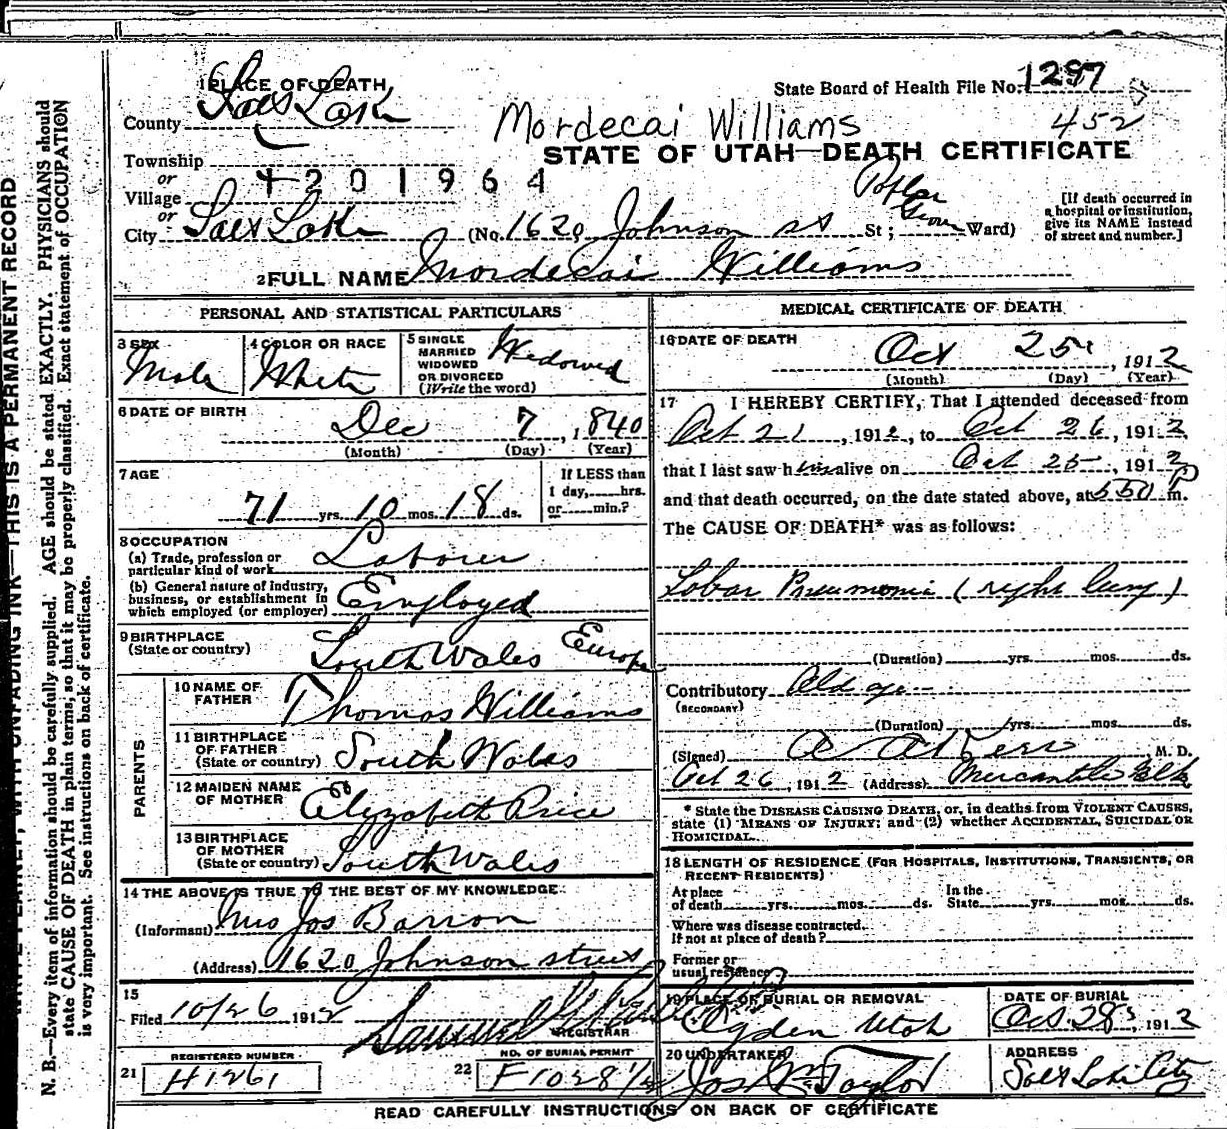 1 PLACE OF DEATH
State Board of Health File No. 1297
County Salt Lake
Mordecai Williams
452
Township
STATE OF UTAH—DEATH CERTIFICATE
or
Village
4201964
or
City Salt Lake (No. 1620 Johnson st St; Poplar Grove Ward)
[If death occurred in a hospital or institution, give its NAME instead of street and number.]
2 FULL NAME Mordecai Williams
PERSONAL AND STATISTICAL PARTICULARS
3 SEX
Male
4 COLOR OR RACE
White
5 SINGLE
MARRIED
WIDOWED
OR DIVORCED
(Write the word)
Widowed
6 DATE OF BIRTH
Dec 7, 1840
(Month) (Day) (Year)
7 AGE
71 yrs. 10 mos. 18 ds.
If LESS than
1 day, hrs.
or min.?
8 OCCUPATION
(a) Trade, profession or
particular kind of work Laborer
(b) General nature of industry,
business, or establishment in
which employed (or employer) Employed
9 BIRTHPLACE
(State or country) South Wales Europe
PARENTS
10 NAME OF
FATHER Thomas Williams
11 BIRTHPLACE
OF FATHER
(State or country) South Wales
12 MAIDEN NAME
OF MOTHER Elyzabeth Price
13 BIRTHPLACE
OF MOTHER
(State or country) South Wales
14 THE ABOVE IS TRUE TO THE BEST OF MY KNOWLEDGE
(Informant) Mrs Jos Barron
(Address) 1620 Johnson street
15
Filed 10/26 1912 Samuel
REGISTRAR
REGISTERED NUMBER
21 H1261
NO. OF BURIAL PERMIT
22 F1028 1/2
MEDICAL CERTIFICATE OF DEATH
16 DATE OF DEATH
Oct 25, 1912
(Month) (Day) (Year)
17 I HEREBY CERTIFY, That I attended deceased from
Oct 21, 1912, to Oct 26, 1912
that I last saw him alive on Oct 25, 1912
and that death occurred, on the date stated above, at 550 P m.
The CAUSE OF DEATH* was as follows:
Lobar Pneumonia (right lung)
(Duration) yrs. mos. ds.
Contributory Old age
(SECONDARY)
(Duration) yrs. mos. ds.
(Signed) M. D.
Oct 26, 1912 (Address) Mercantile
* State the DISEASE CAUSING DEATH, or, in deaths from VIOLENT CAUSES,
state (1) MEANS OF INJURY; and (2) whether ACCIDENTAL, SUICIDAL OR
HOMICIDAL.
18 LENGTH OF RESIDENCE (FOR HOSPITALS, INSTITUTIONS, TRANSIENTS, OR
RECENT RESIDENTS)
At place
of death yrs. mos. ds.
In the
State yrs. mos. ds.
Where was disease contracted.
If not at place of death?
Former or
usual residence
19 PLACE OF BURIAL OR REMOVAL
Ogden Utah
DATE OF BURIAL
Oct. 28, 1912
20 UNDERTAKER
Jos Wm Taylor
ADDRESS
Salt Lake City
READ CAREFULLY INSTRUCTIONS ON BACK OF CERTIFICATE
WITH UNFADING INK—THIS IS A PERMANENT RECORD
N. B.—Every item of information should be carefully supplied. AGE should be stated EXACTLY. PHYSICIANS should
state CAUSE OF DEATH in plain terms, so that it may be properly classified. Exact statement of OCCUPATION
is very important. See instructions on back of certificate.